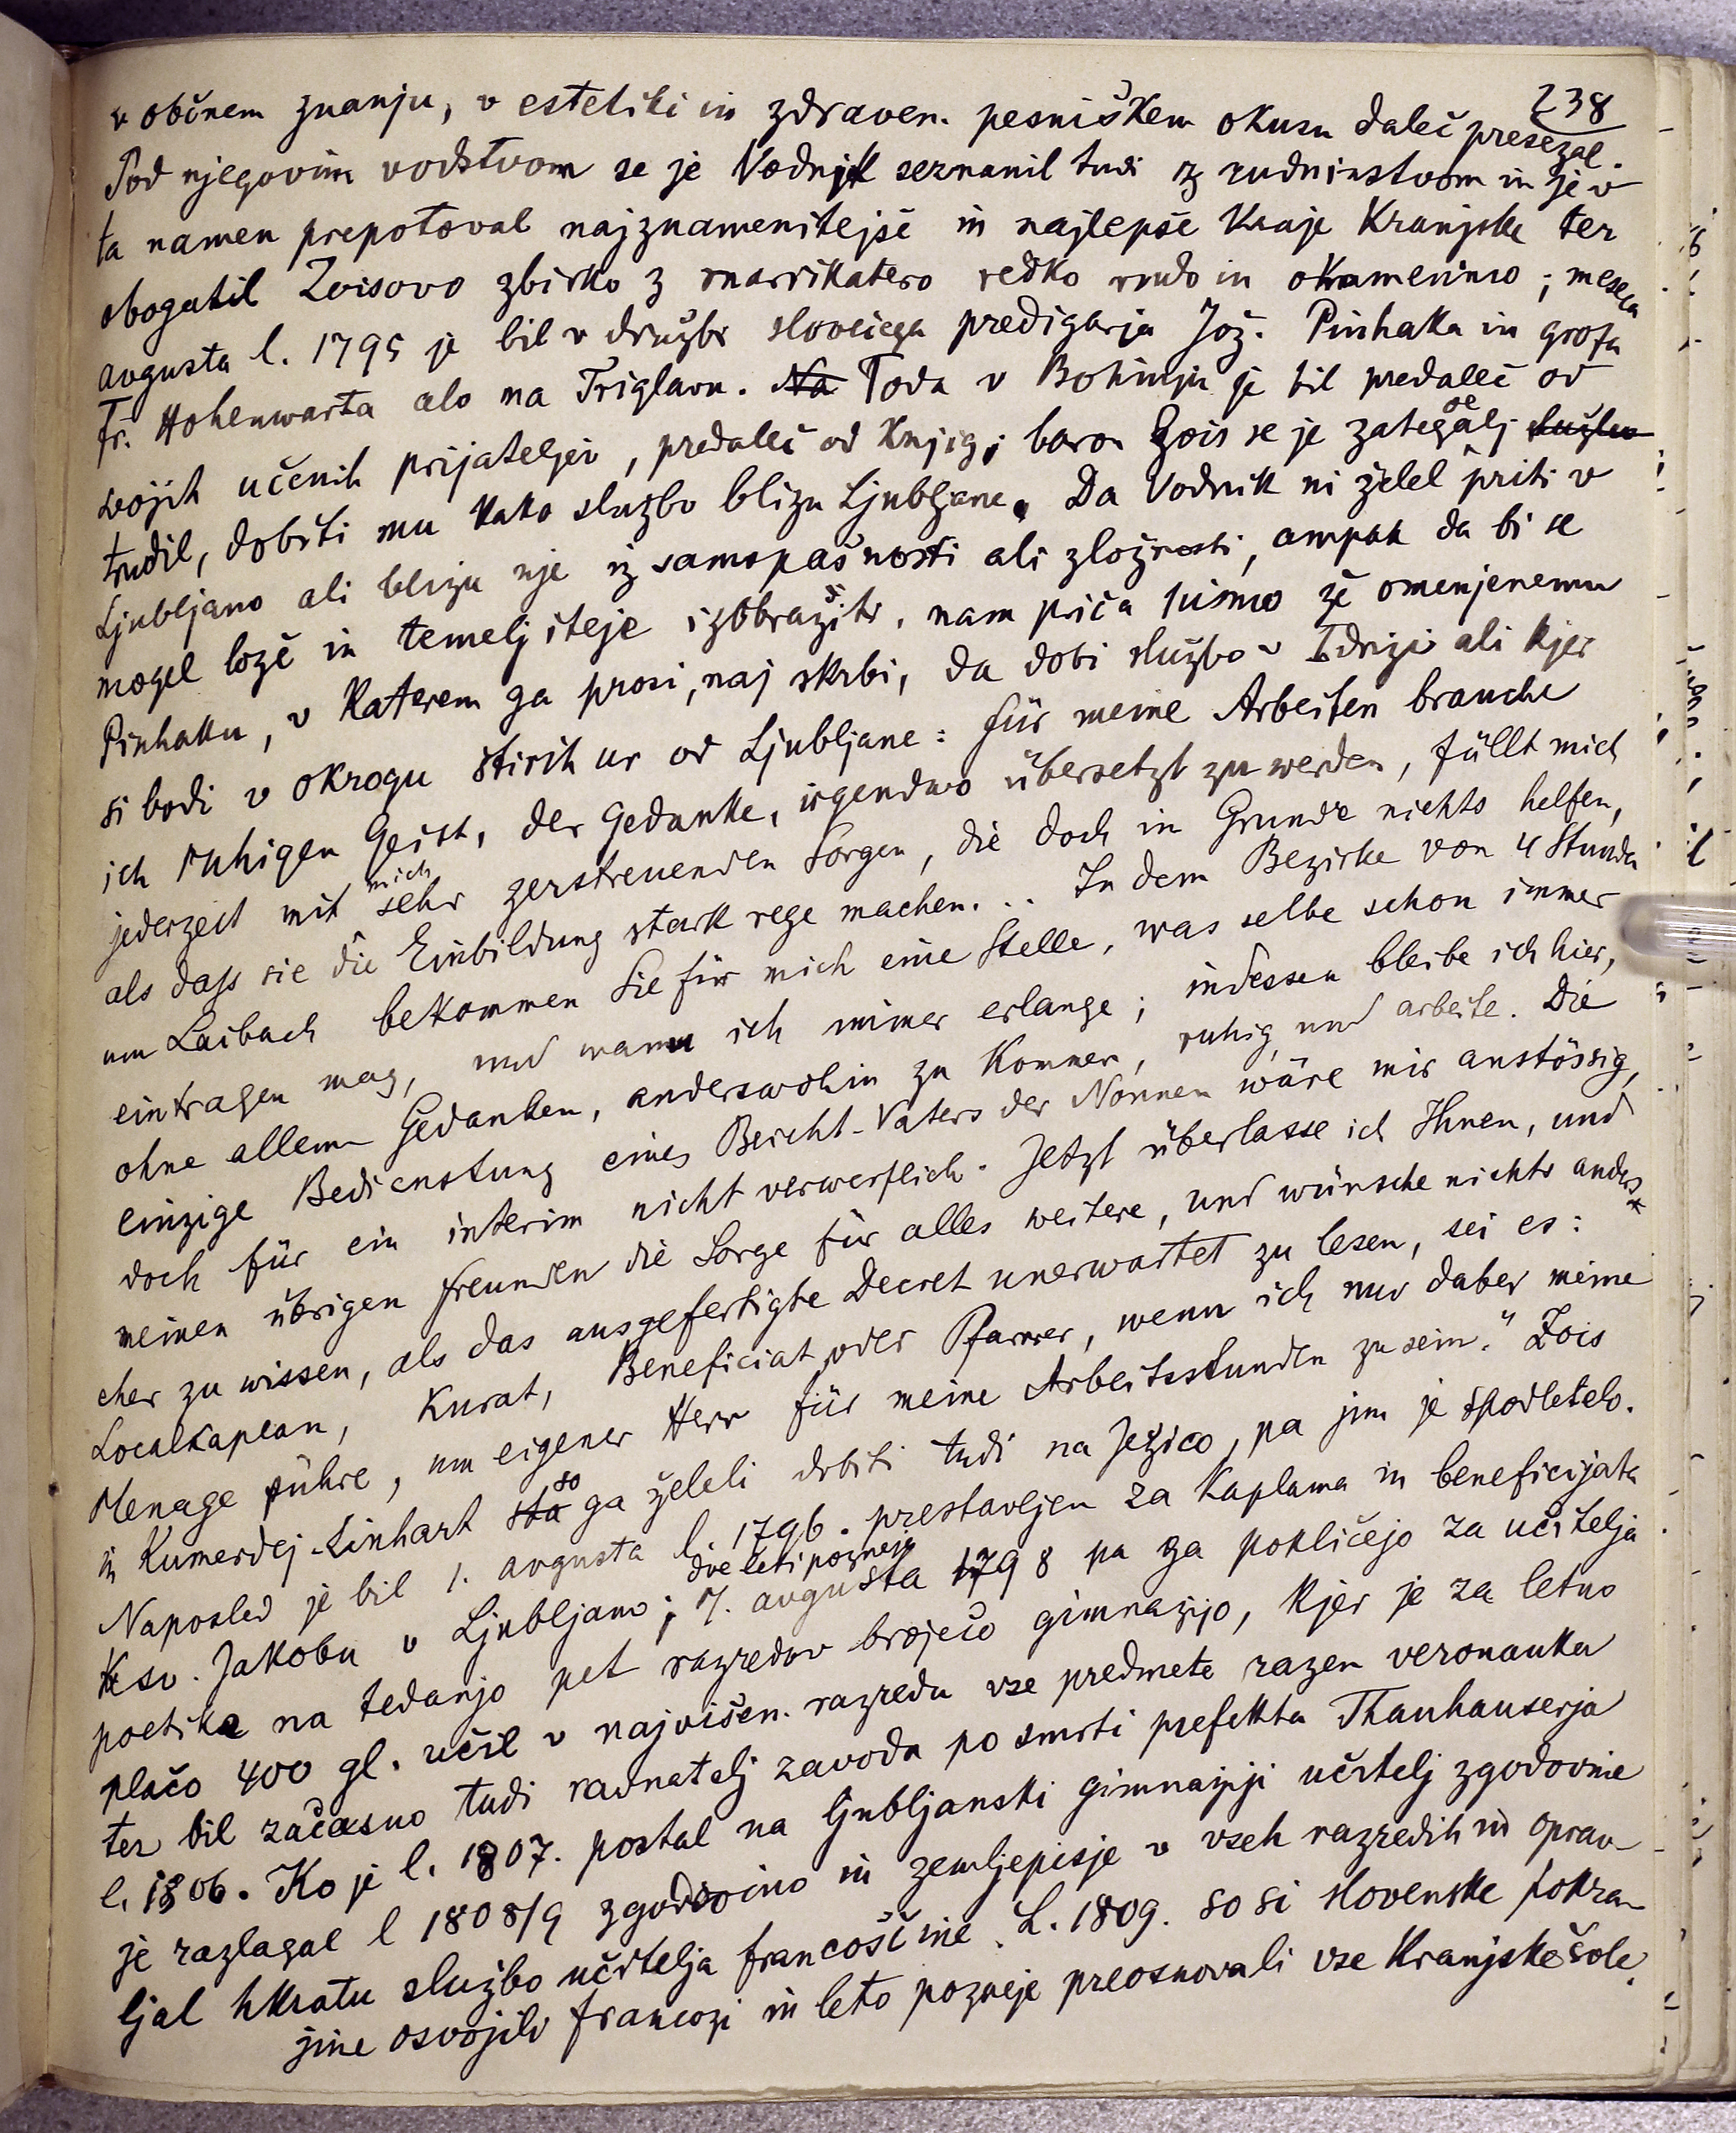 238
v občnem znanju, v estetiki in zdravem pesniškem okusu daleč presezal.
Pod njegovim vodstvom se je Vodnik seznanil tudi z rudninstvom in je v
ta namen prepotoval najznamenitejše in najlepše kraje Kranjske ter
obogatil Zoisovo zbirko z marsikatero redko rudo in okamenino; meseca
avgusta l. 1795 je bil v družbi slovečega predigarja Jož. Pinhaka in grofa
Fr. Hohenwarta celo na Triglavu. Na Toda v Bohinju je bil predaleč od
svojih učenih prijateljev, predaleč od knjig; baron Zois se je zategadelj službo
trudil, dobiti mu kako službo blizu Ljubljane. Da Vodnik ni želel priti v
Ljubljano ali blizu nje iz samopašnosti ali zložnosti, ampak da bi se
mogel lože in temeljiteje izobražiti, nam priča pismo že omenjenemu
Pinhaku, v katerem ga prosi, naj skrbi, da dobi službo v Idriji ali kjer
si bodi v okrogu štirih ur od Ljubljane: für meine Arbeiten brauche
ich ruhigen Geist, der Gedanke, irgendwo übersetzt zu werden, füllt mich
jederzeit mit mich sehr zerstreuenden Sorgen, die doch in Grunde nichts helfen,
als daſs sie die Einbildung stark rege machen... In dem Bezirke von 4 Stunden
um Laibach bekommen Sie für mich eine Stelle, was selbe schon immer
eintragen mag, und wann ich immer erlange; indessen bleibe ich hier,
ohne allem Gedanken, anderswohin zu kommen, ruhig und arbeite. Die
einzige Bedienstung eines Beicht-Vaters der Nonnen wäre mir anstössig,
doch für ein interim nicht verwerflich. Jetzt überlasse ich Ihnen, und
meinen übrigen Freunden die Sorge für alles weitere, und wünsche nichts anders
eher zu wissen, als das ausgefertigte Decret unerwartet zu lesen, sei es:
Localkaplan, Kurat, Beneficiat oder Pfarrer, wenn ich nur daber meine
Menage führe, um eigener Herr für meine Arbeitsstunden zu sein." Zois
in Kumerdej-Linhart sta so ga želeli dobiti tudi na Ježico, pa jim je spodletelo.
Naposled je bil 1. avgusta l. 1796. prestavljen za kaplana in beneficijata
k sv. Jakobu v Ljubljano; dve leti pozneje 7. avgusta 1798 pa ga pokličejo za učitelja
poetike na tedanjo pet razredov broječo gimnazijo, kjer je za letno
plačo 400 gl. učil v najvišem razredu vse predmete razen veronauka
ter bil začasno tudi ravnatelj zavoda po smrti prefekta Thanhauserja
l. 1806. Ko je l. 1807. postal na ljubljanski gimnaziji učitelj zgodovine
je razlagal l 1808/9 zgodovino in zemljepisje v vseh razredih in oprav-
ljal hkratu službo učitelja francoščine. L. 1809. so si slovenske pokra-
jine osvojili francozi in leto pozneje preosnovali vse kranjske šole.